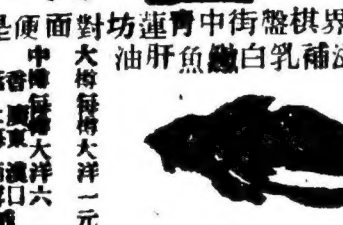 界棋盤街中青蓮坊對面便是
補乳白鰵魚肝油
大樽每樽大洋一元
中樽每樽大洋六
香 廣東 漢口